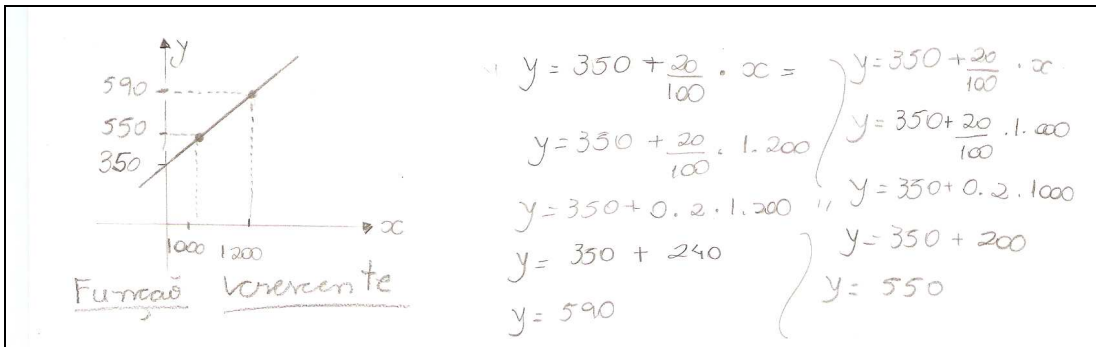 y
590
550
350
1000 1200
x
Função crescente
y = 350 + 20/100 . x =
y = 350 + 20/100 . 1.200
y = 350 + 0.2.1.200
y = 350 + 240
y = 590
y = 350 + 20/100 . x
y = 350 + 20/100 . 1.000
y = 350 + 0.2.1000
y = 350 + 200
y = 550